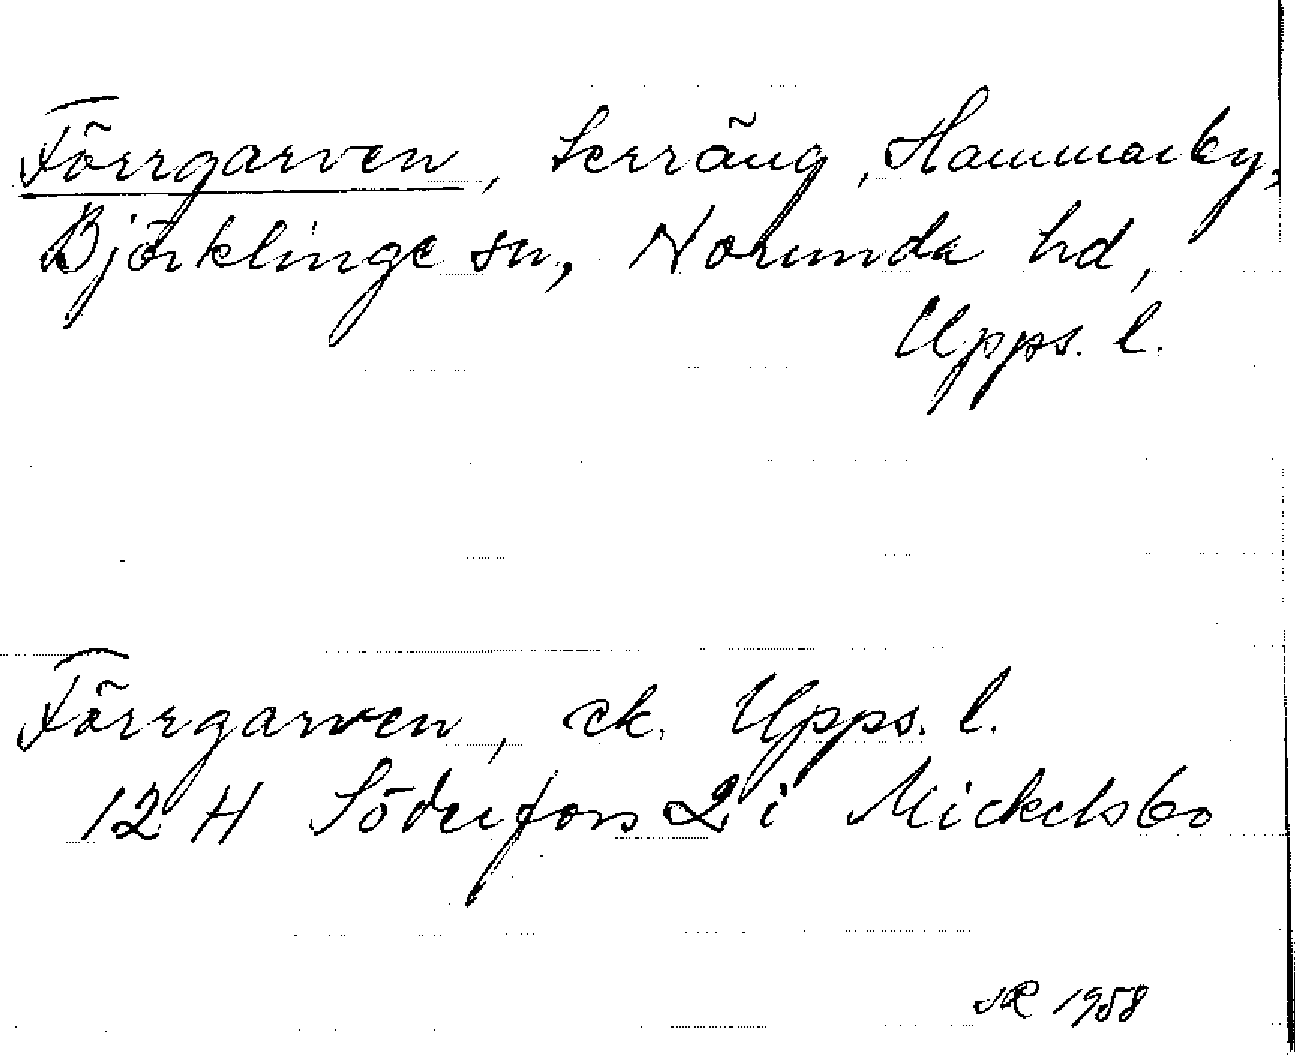 Förrgarven, terräng, Hammarby,
Björklinge sn, Norunda hd,
Upps. l.
Förrgarven, ek. Upps. l.
12 H Söderfors 2 i Mickelsbo
1958